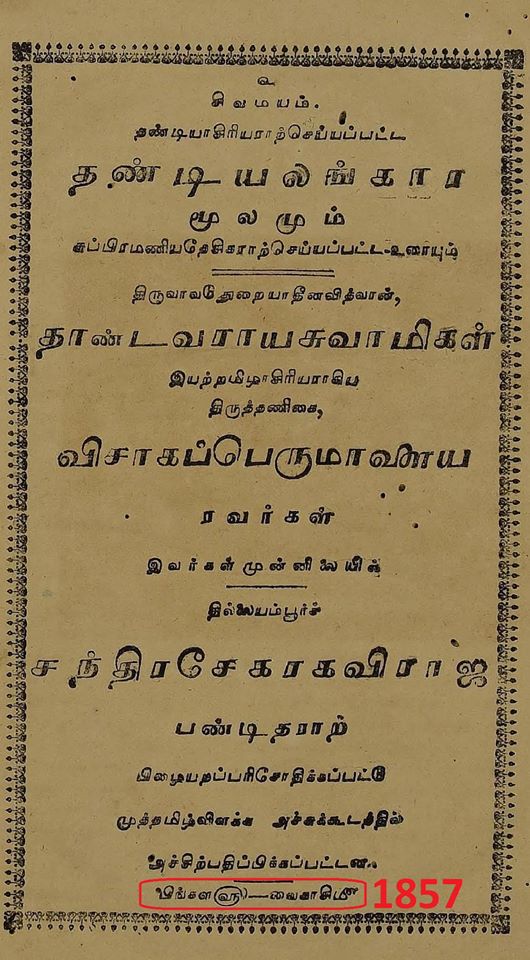 உ
சிவமயம்.
தண்டியாசிரியராற்செய்யப்பட்ட
தண்டியலங்கார
மூலமும்
சுப்பிரமணியதேசிகராற்செய்யப்பட்ட-உரையும்
திருவாவடுதுறையாதீனவித்வான்,
தாண்டவராயசுவாமிகள்
இயற்றமிழாசிரியராகிய
திருத்தணிகை,
விசாகப்பெருமாளைய
ரவர்கள்
இவர்கள்முன்னிலையில்
தில்லையம்பூர்ச்
சந்திரசேகரகவிராஜ
பண்டிதராற்
பிழையறப்பரிசோதிக்கப்பட்டு
முத்தமிழ்விளக்க அச்சுக்கூடத்தில்
அச்சிற்பதிப்பிக்கப்பட்டன.
பிங்கள௵—வைகாசி௴ 1857